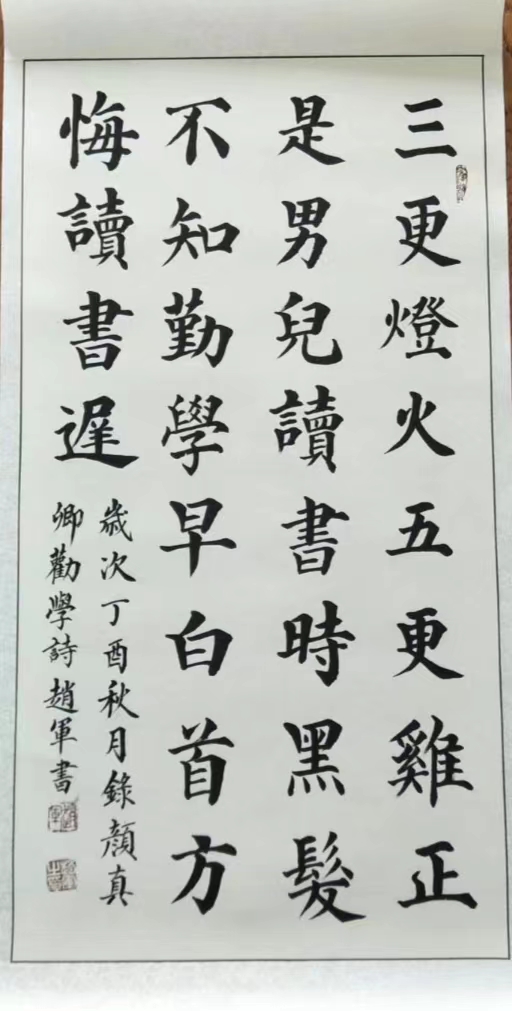 三更燈火五更雞正
是男兒讀書時黑髮
不知勤學早白首方
悔讀書遲
歲次丁酉秋月錄顏真
卿勸學詩趙軍書